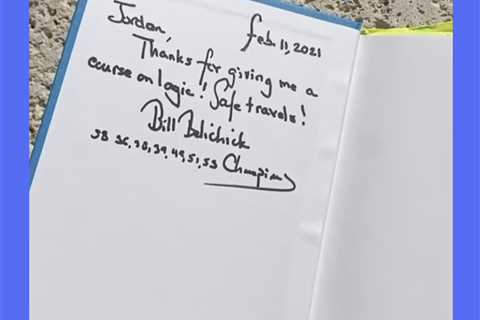 Feb. 11, 2021
Jordan,
Thanks for giving me a
course on logic! Safe travels!
Bill Belichick
38 36, 38, 39, 49, 51, 53 Champions